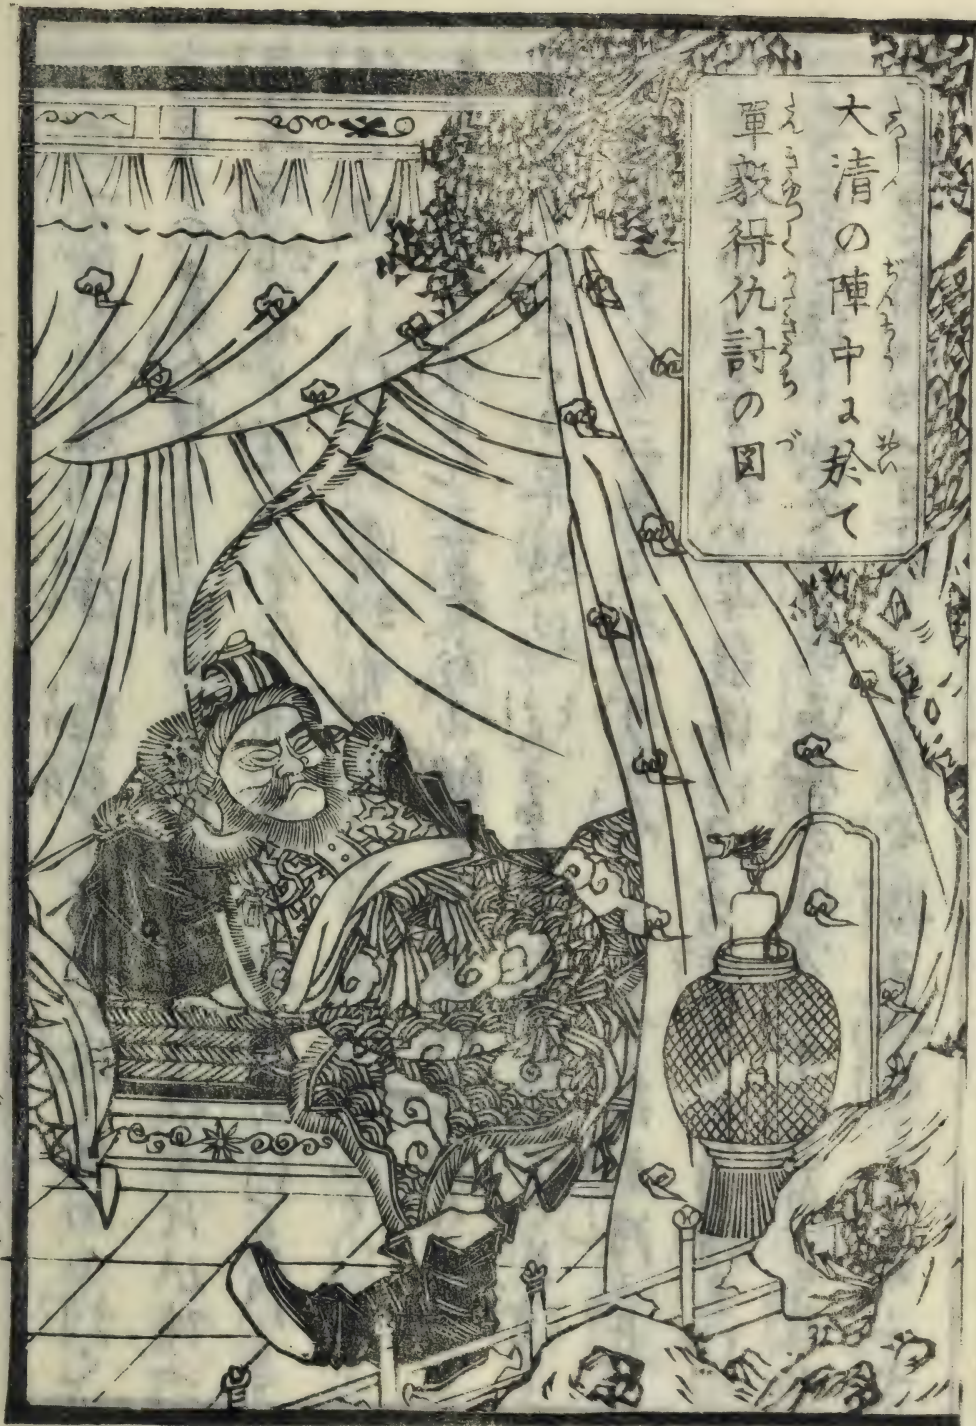 大清の陣中に於て
單毅得仇討の図